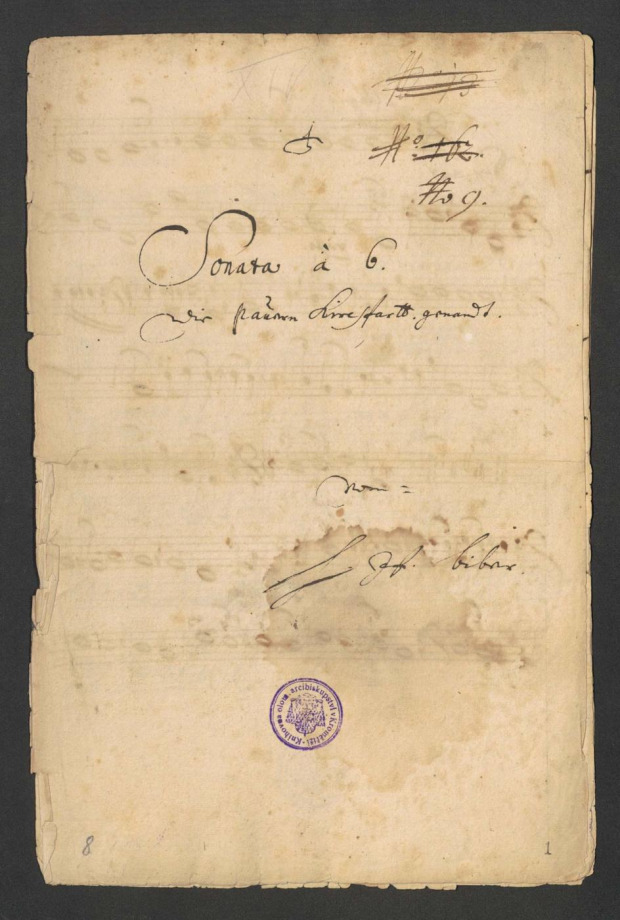 XIV
No 13
No: 16.
No 9.
Sonata à 6.
die pauern Kirchfartt genandt.
Von =
H Biber.
Knihovna olom. arcibiskupství v Kroměříži
8
1